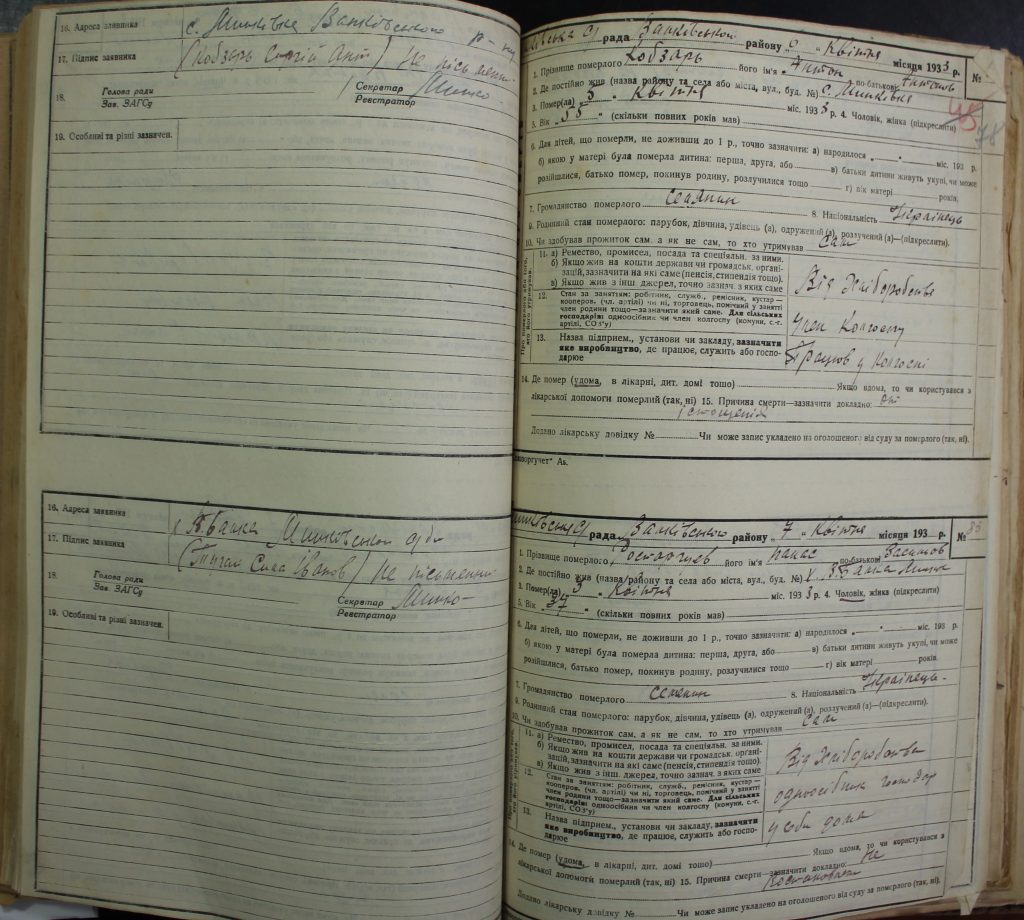 16. Адреса заявника с. Минківка Валківського р-ну
17. Підпис заявника (Кобзарь Сергій Ант) Не письменн
18. Голова ради
Зав. ЗАГСу
Секретар
Реєстратор
19. Особливі та різні зазначен.
16. Адреса заявника х Балка Минківської с/р
17. Підпис заявника
18. Голова ради
Зав. ЗАГСу
Секретар
Реєстратор
19. Особливі та різні зазначен.
рада Валківської району " " Квітня місяця 1933 р. №
1. Прізвище померлого Кобзарь його ім'я Антон по-батькові Антонов
2. Де постійно жив (назва району та села або міста, вул., буд. №) с. Минківка
3. Помер(ла) 3 " Квітня міс. 193 3 р. 4. Чоловік, жінка (підкреслити)
5. Вік " 58 " (скільки повних років мав)
6. Для дітей, що померли, не доживши до 1 р., точно зазначити: а) народилося " " міс. 193 р.
б) якою у матері була померла дитина: перша, друга, або в) батьки дитини живуть укупі, чи може
розійшлися, батько помер, покинув родину, розлучилися тощо г) вік матері років.
7. Громадянство померлого селянин 8. Національність Українець
9. Родинний стан померлого: парубок, дівчина, удівець (а), одружений (а), розлучений (а)—(підкреслити).
10. Чи здобував прожиток сам, а як не сам, то хто утримував сам
11. а) Ремество, промисел, посада та спеціяльн. за ними.
б) Якщо жив на кошти держави чи громадськ. органі-
зацій, зазначити на які саме (пенсія, стипендія тощо).
в) Якщо жив з інш. джерел, точно зазнач. з яких саме
Від Хліборобства
12. Стан за заняттям: робітник, служб., ремісник, кустар—
кооперов. (чл. артілі) чи ні, торговець, помічний у занятті
член родини тощо—зазначити який саме. Для сільських
господарів: одноосібник чи член колгоспу (комуни, с.-г.
артілі, СОЗ'у)
Член Колгоспу
13. Назва підприєм., установи чи закладу, зазначити
яке виробництво, де працює, служить або госпо-
дарює
Працюв у колгоспі
14. Де помер (удома, в лікарні, дит. домі тощо) Якщо вдома, то чи користувався з
лікарської допомоги померлий (так, ні) 15. Причина смерти—зазначити докладно: от
істощенія
Додано лікарську довідку № Чи може запис укладено на оголошеного від суду за померлого (так, ні).
рада Валківського району 7 " Квітня місяця 193 р. №
1. Прізвище померлого його ім'я Панас по-батькові
2. Де постійно жив (назва району та села або міста, вул., буд. №) х. Балка
3. Помер(ла) 3 " Квітня міс. 193 3 р. 4. Чоловік, жінка (підкреслити)
5. Вік " 37 " (скільки повних років мав)
6. Для дітей, що померли, не доживши до 1 р., точно зазначити: а) народилося " " міс. 193 р.
б) якою у матері була померла дитина: перша, друга, або в) батьки дитини живуть укупі, чи може
розійшлися, батько помер, покинув родину, розлучилися тощо г) вік матері років.
7. Громадянство померлого селянин 8. Національність Українець
9. Родинний стан померлого: парубок, дівчина, удівець (а), одружений (а), розлучений (а)—(підкреслити).
10. Чи здобував прожиток сам, а як не сам, то хто утримував сам
11. а) Ремество, промисел, посада та спеціяльн. за ними.
б) Якщо жив на кошти держави чи громадськ. органі-
зацій, зазначити на які саме (пенсія, стипендія тощо).
в) Якщо жив з інш. джерел, точно зазнач. з яких саме
Від Хліборобства
12. Стан за заняттям: робітник, служб., ремісник, кустар—
кооперов. (чл. артілі) чи ні, торговець, помічний у занятті
член родини тощо—зазначити який саме. Для сільських
господарів: одноосібник чи член колгоспу (комуни, с.-г.
артілі, СОЗ'у)
одноосібник господар
13. Назва підприєм., установи чи закладу, зазначити
яке виробництво, де працює, служить або госпо-
дарює
у себи дома
14. Де помер (удома, в лікарні, дит. домі тощо) Якщо вдома, то чи користувався з
лікарської допомоги померлий (так, ні) 15. Причина смерти—зазначити докладно: Не
Додано лікарську довідку № Чи може запис укладено на оголошеного від суду за померлого (так, ні).